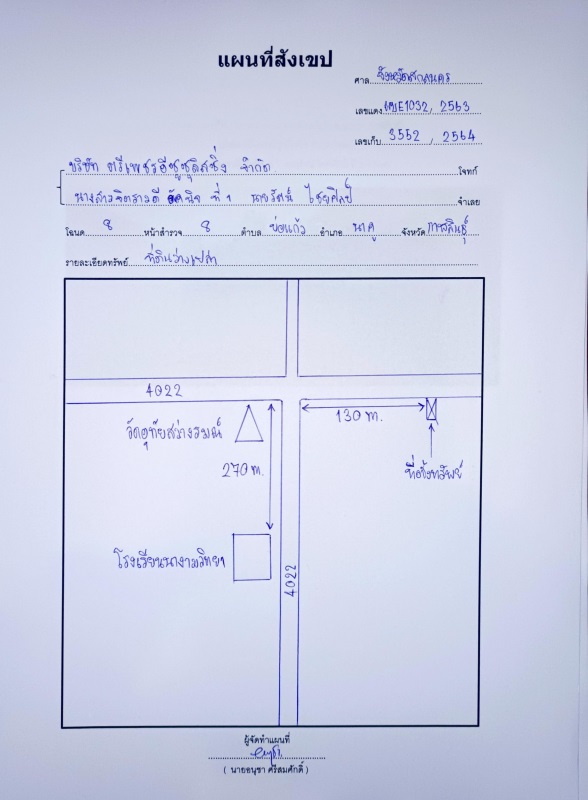 แผนที่สังเขป
ศาล จังหวัดสกลนคร
เลขแดง ผบE1032, 2563
เลขเก็บ 3552, 2564
บริษัท ตรีเพชรอีซูซุลิสซิ่ง จำกัด โจทก์
นางสาวจิตราวดี ที่ 1 นายรัตน์ ไชยศิลป์ จำเลย
โฉนด 8 หน้าสำรวจ 8 ตำบล บ่อแก้ว อำเภอ นาคู จังหวัด กาฬสินธุ์
รายละเอียดทรัพย์ ที่ดินว่างเปล่า
4022
130 m.
วัดอุทัยสว่างรมณ์
270 m.
ที่ตั้งทรัพย์
โรงเรียนนางามวิทยา
4022
ผู้จัดทำแผนที่
( นายอนุชา ศรีสมศักดิ์ )